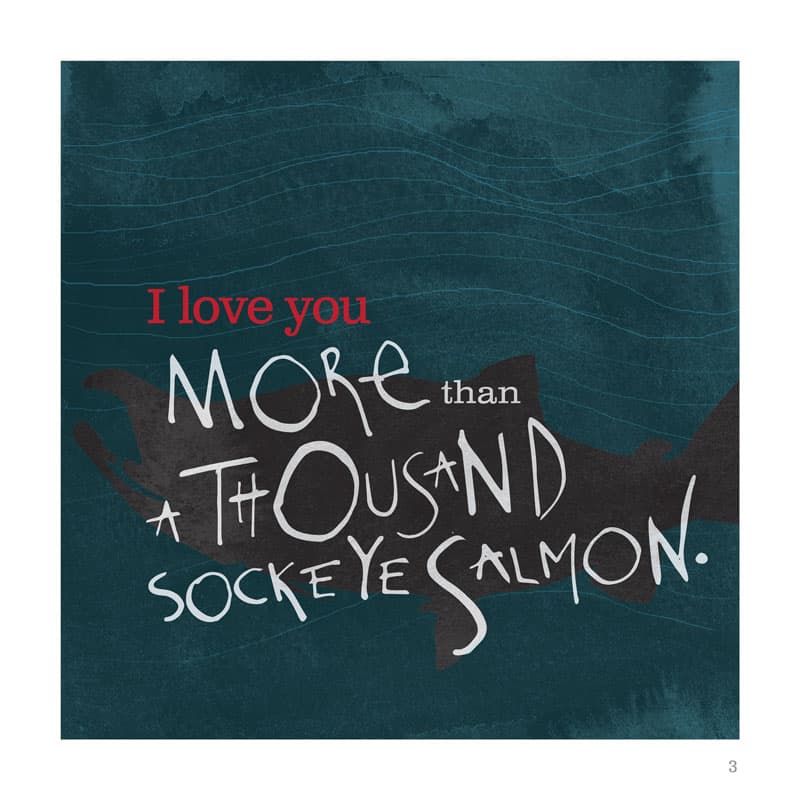 I love you
MORe than
A THOUSAND
SOCKEYE SALMON.
3